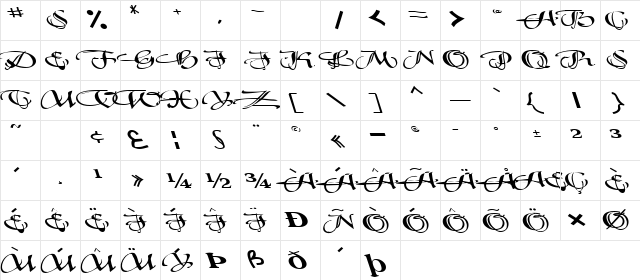 # $ % * + , - / < = > @ A B C
D E F G H I J K L M N O P Q R S
T U V W X Y Z [ \ ] ^ _ ` { | }
~ ¢ £ ¦ § ¨ © « ¬ ® ¯ ° ± ² ³
´ · ¹ » ¼ ½ ¾ À Á Â Ã Ä Å Æ Ç È
É Ê Ë Ì Í Î Ï Ð Ñ Ò Ó Ô Õ Ö × Ø
Ù Ú Û Ü Ý Þ ß ð ´ þ